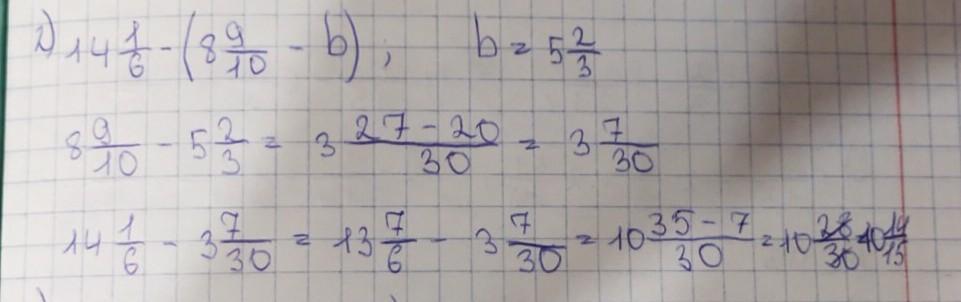 2) 14 1/6 - (8 9/10 - b); b = 5 2/3
8 9/10 - 5 2/3 = 3 27-20/30 = 3 7/30
14 1/6 - 3 7/30 = 13 7/6 - 3 7/30 = 10 35-7/30 = 10 28/30 10 14/15